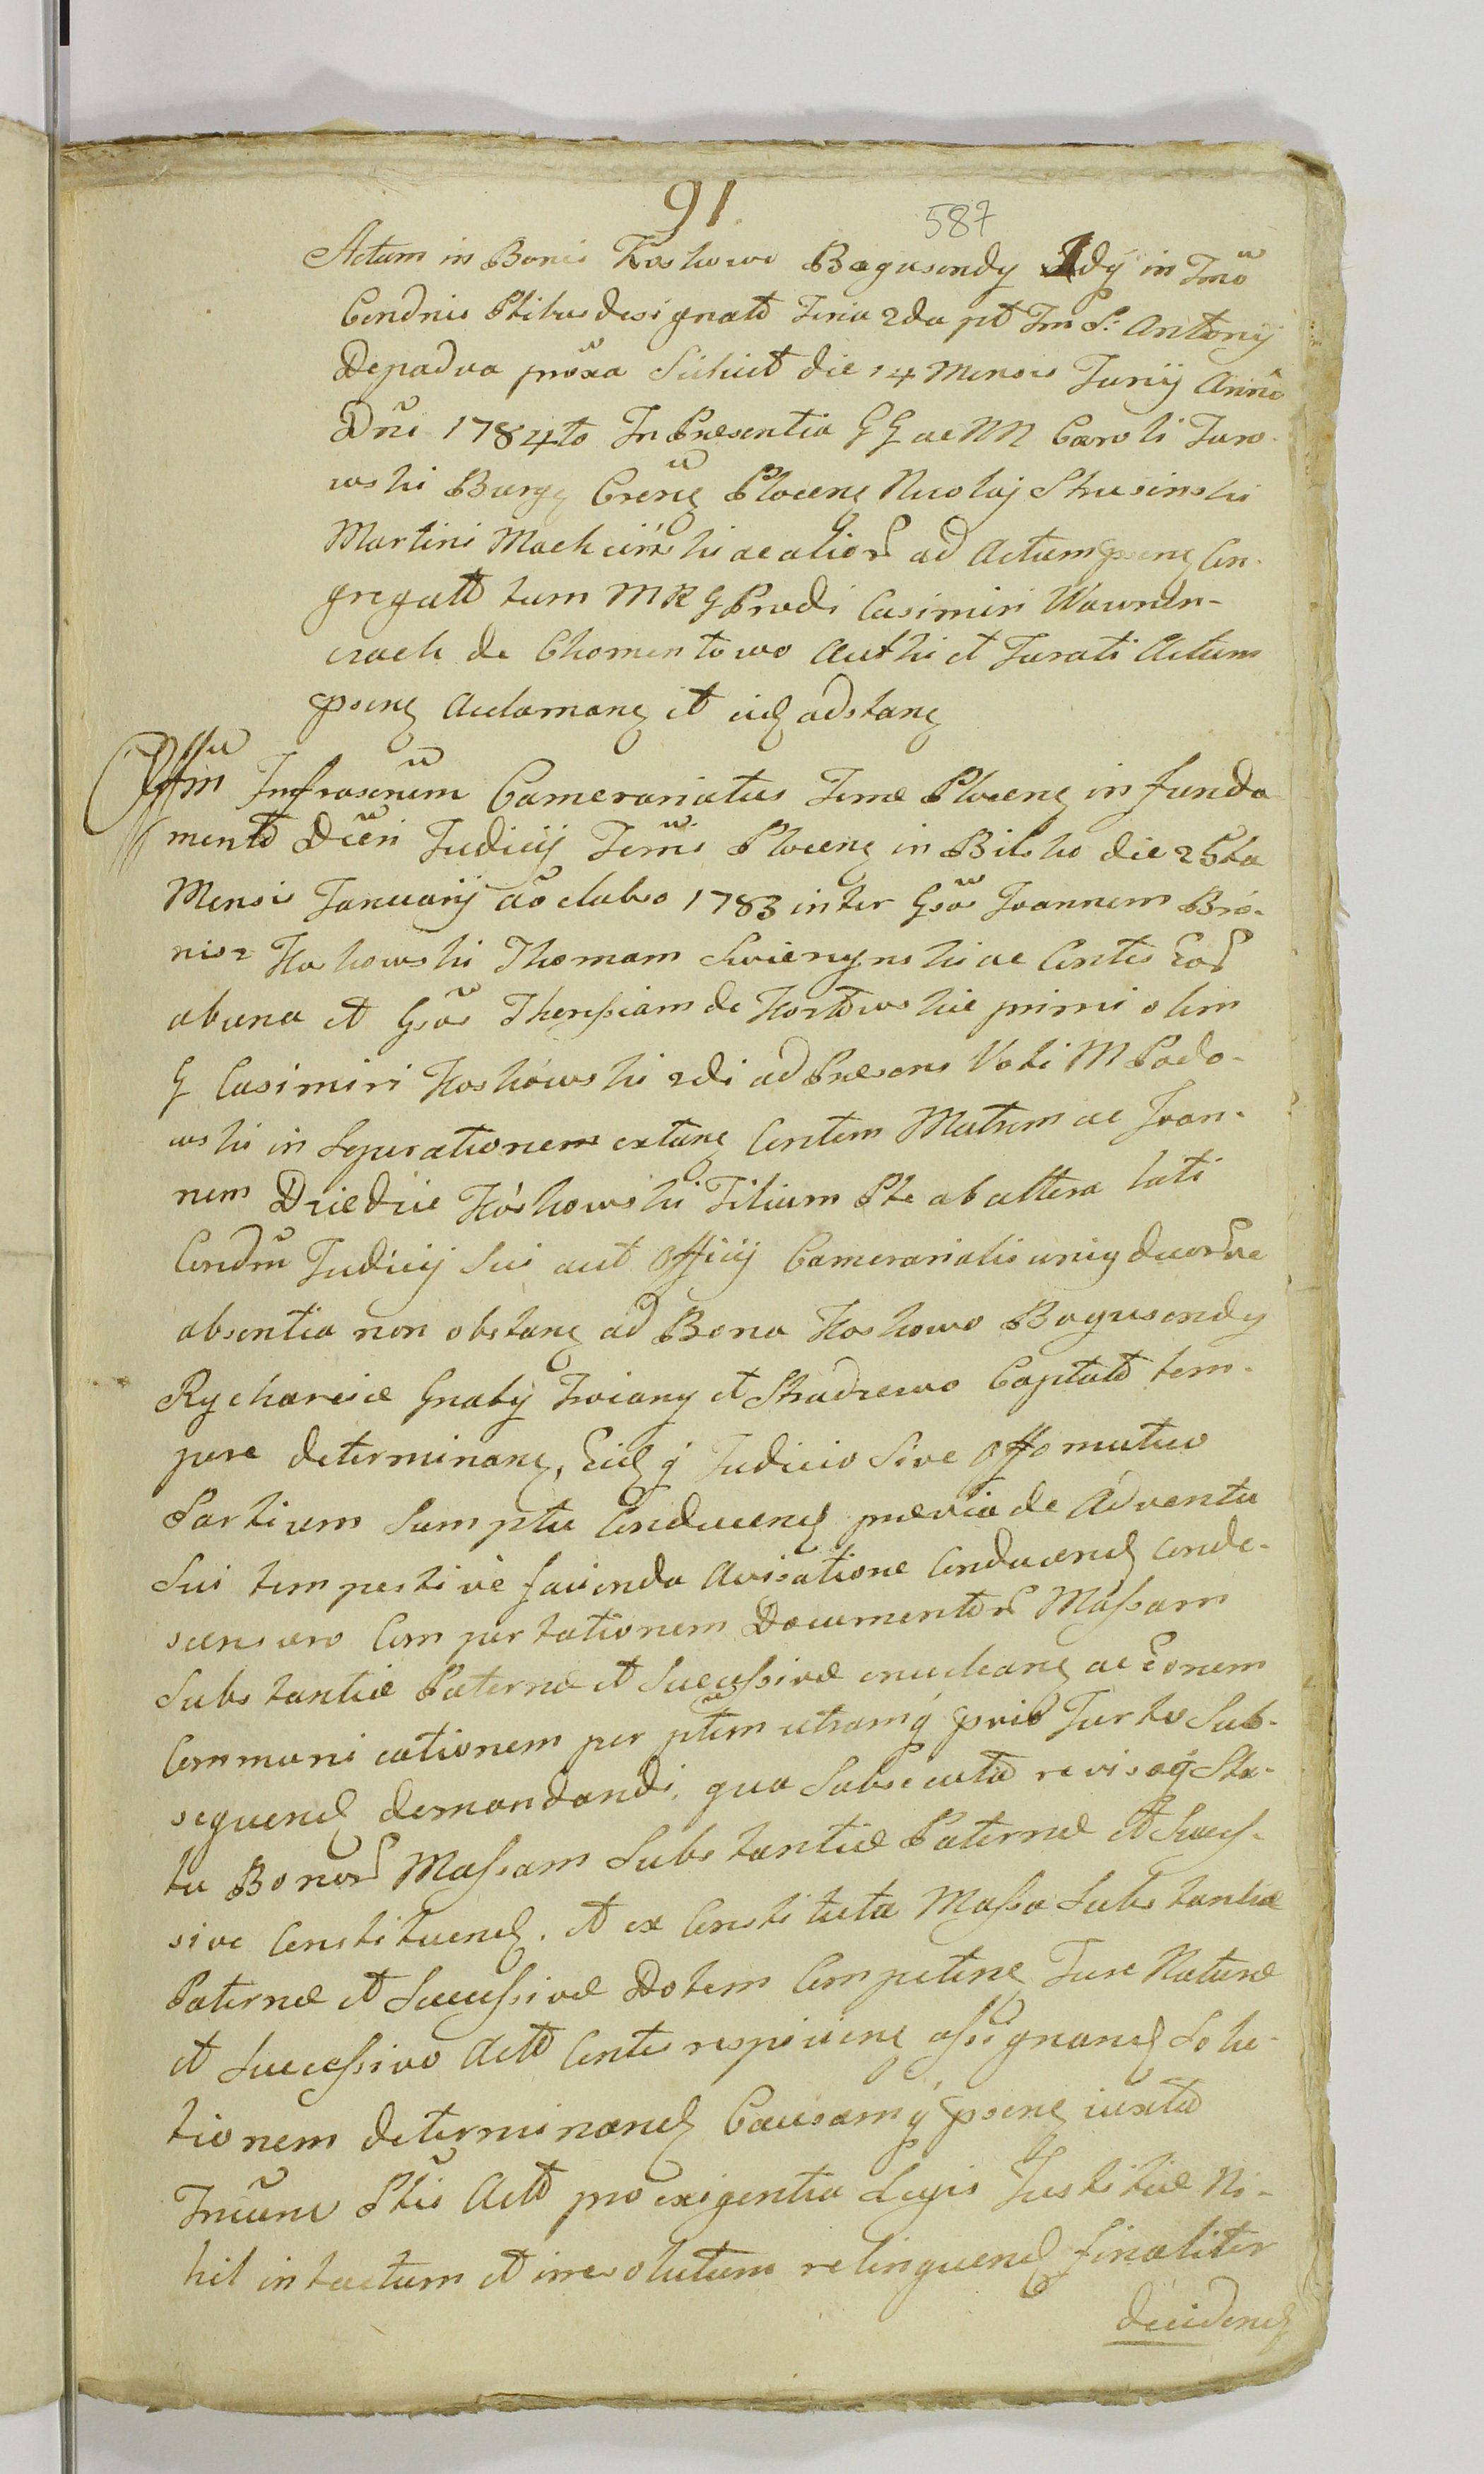 91.
587
Actum in Bonis Koskowo Bogusendy Idy in Tmo
Condnis Ptibus designato Feria 2da pt Fm S: Antonij
Depadva proxa Scilicet die 14 Mensis Junij Anno
Dni 1784to In Presentia GG ac NN Caroli Turo-
wski Burg Creng Ploceng Nicolaj Strusinski
Martini Machcinski ac alior ad Actum pseng Con-
gregatt tum MRG Prodi Casimiri Wawrzn-
czack de Chomentowo Authi et Jurati Actum
pseng Acclamang et eid adstang
Offm Infrascrum Camerariatus Terræ Ploceng in funda
mento Dcen Judicij Terris Ploceng in Bilsko die 25ta
Mensis Januarij ao elabso 1783 inter Gsos Joannem Bro-
nisz Koskowski Thomam Swierzynski ac Contis Eor
abuna et Gsos Theressiam de Kosztowskie primi olim
G Casimiri Koskowski 2di ad Præsens Voti M Pado-
wski in Separationem extang Contem Matrem ac Joan-
nem Driedzie Koskowski Filium Pte ab altera lati
Condm Judicij Sui aut Officij Camerarialis unig duorve
absentia non obstang ad Bona Koskowo Bogusendy
Rycharcice Gnaty Trciany et Stradzewo Captato tem-
pore determinang, Eidq Judicio Sive Offo mutuo
Partium Sumptu Conducend prævia de Adventu
Sui tempestivè facienda Avisatione Conducend conde-
scensuro Comportationem Documentor Massam
Substantiæ Paternæ et Successivæ enucleang ac Eorum
Communicationem per ptem utramq prio Jurto Sub-
sequend demandandi, qua Subsecuta revisoq Sta-
tu Bonor Massam Substantiæ Paternæ et Succes-
sivæ Constituend. et ex Constituta Massa Substantiæ
Paternæ et Successivæ Dotem Competeng Jure Naturæ
et Successivo Acto Contis respicieng assignand Solu-
tionem determinand Causamq pseng iuxta
Incum Ptis Acto pro exigentia Legis Justitiæ Ni-
hil intactum et irresolutum relinquend finaliter
decidend